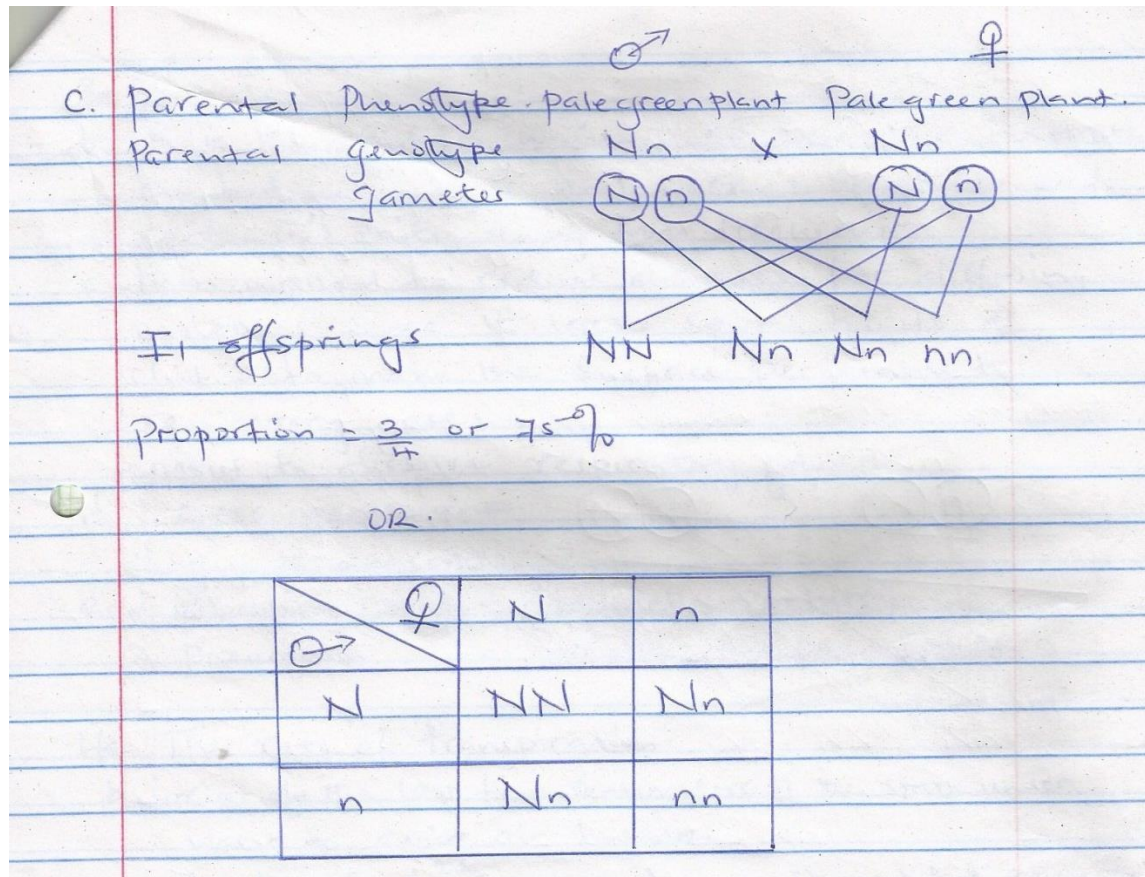 ♂ ♀
C. Parental Phenotype. pale green plant Pale green plant.
Parental genotype Nn x Nn
gametes N n N n
F1 offsprings NN Nn Nn nn
Proportion = 3/4 or 75%
OR.
♀ N n
♂
N NN Nn
n Nn nn